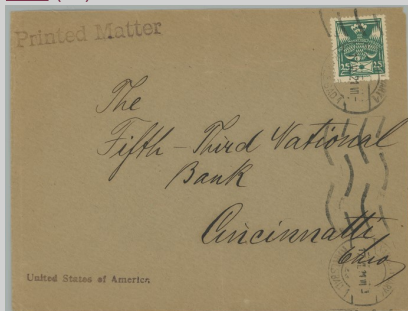 Printed Matter
15 15
The
Fifth-Third National
Bank
Cincinnatti
Ohio
United States of America